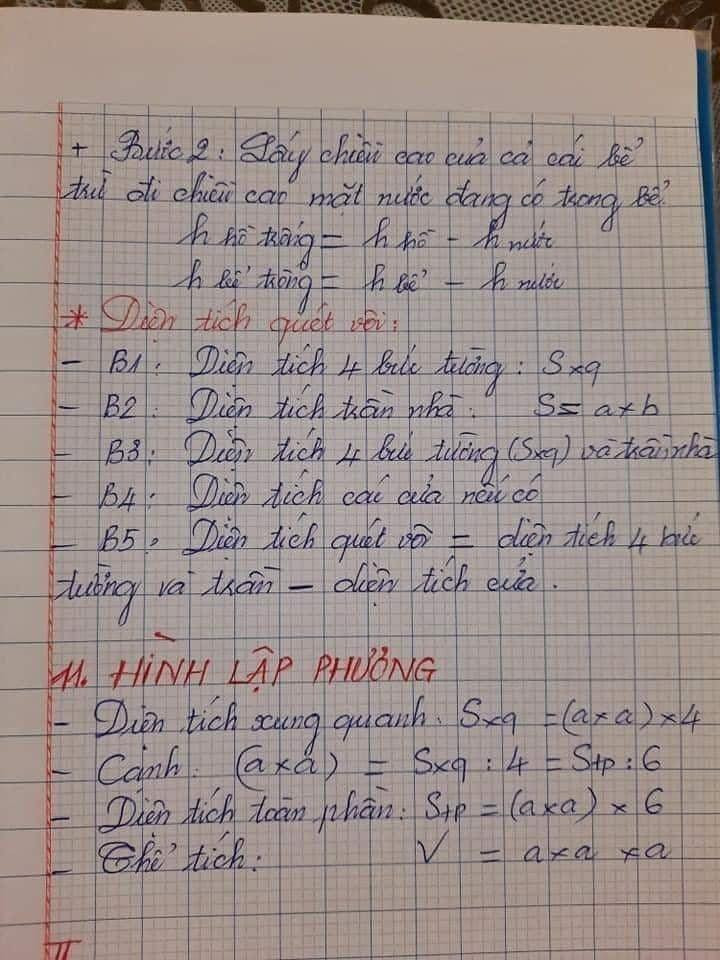 + Bước 2: Lấy chiều cao của cả cái bể
trừ đi chiều cao mặt nước đang có trong bể.
h hồ trống = h hồ - h nước
h bể trống = h bể - h nước
* Diện tích quét vôi:
- B1: Diện tích 4 bức tường: Sxq
- B2: Diện tích trần nhà: S = a x b
- B3: Diện tích 4 bức tường (Sxq) và trần nhà
- B4: Diện tích cái cửa nếu có
- B5: Diện tích quét vôi = diện tích 4 bức
tường và trần - diện tích cửa.
11. HÌNH LẬP PHƯƠNG
- Diện tích xung quanh: Sxq = (a x a) x 4
- Cạnh: (a x a) = Sxq : 4 = Stp : 6
- Diện tích toàn phần: Stp = (a x a) x 6
- Thể tích: V = a x a x a